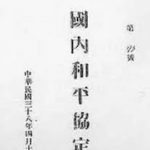 第 號
國內和平協定
中華民國三十八年四月十